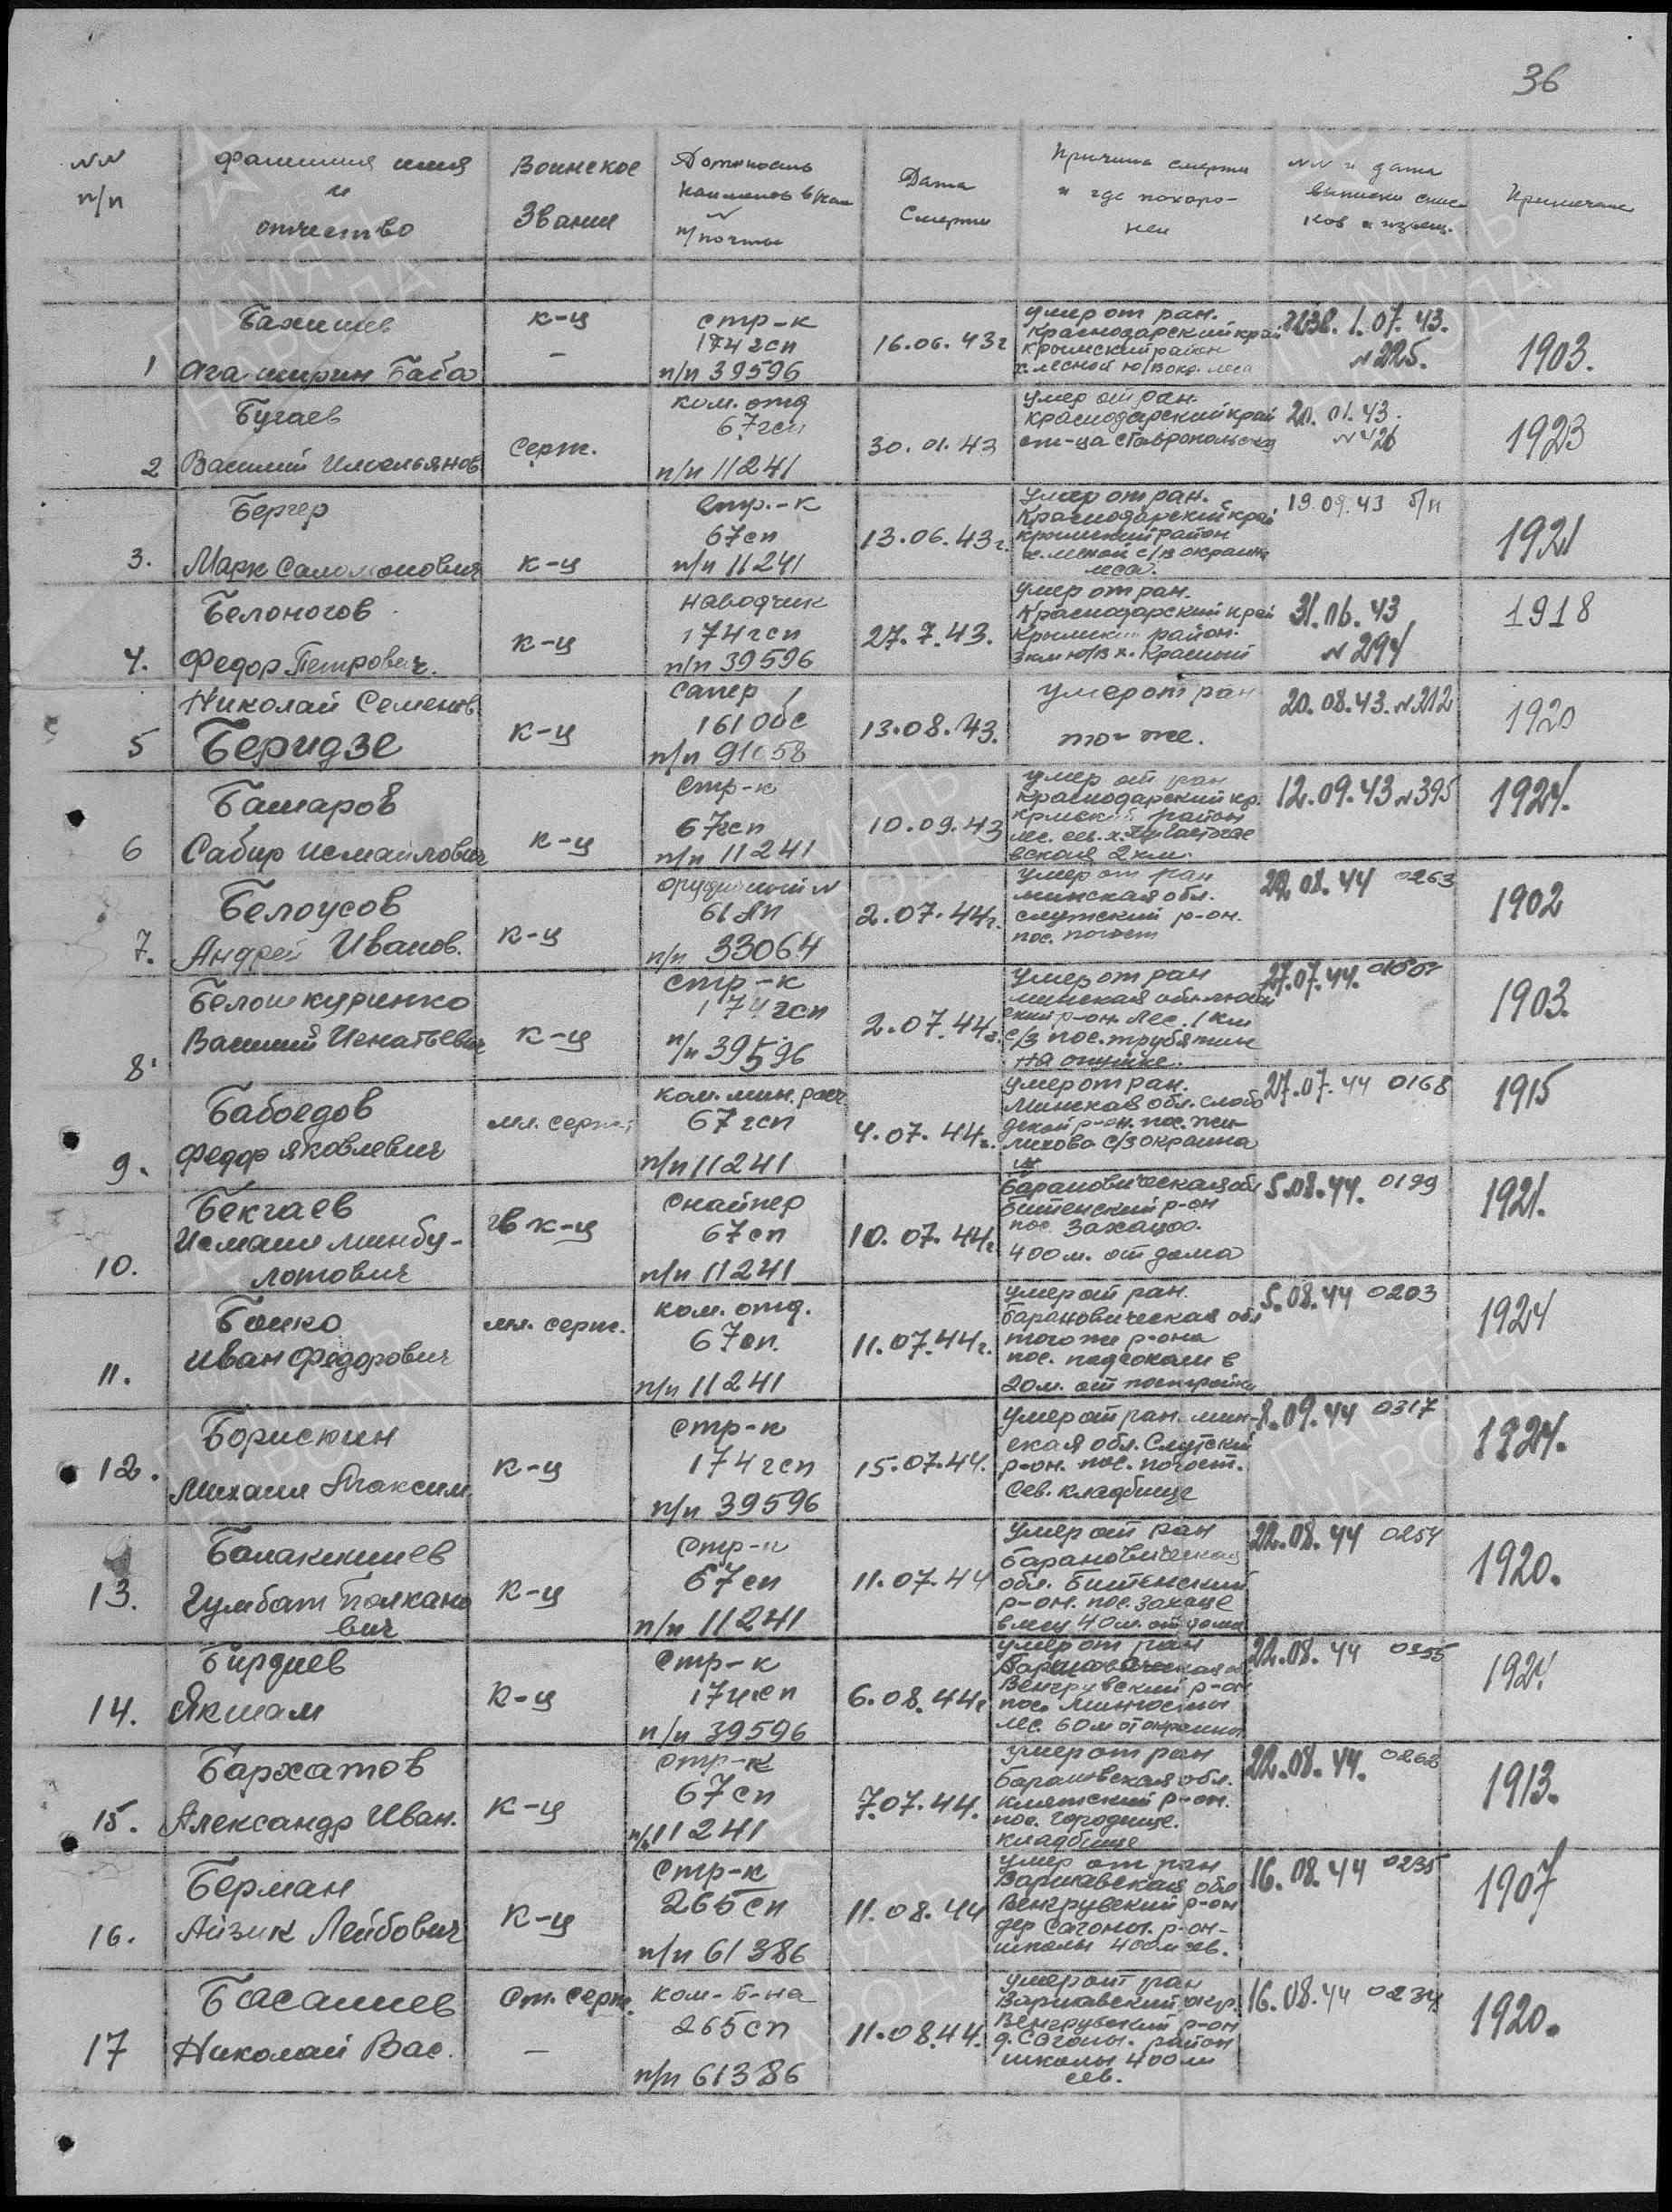 36
NN п/п
фамилия имя и отчество
Воинское звание
Должность наименов в/части п/почты
Дата смерти
Причина смерти и где похоронен
NN и дата выписки списков и извещ.
Примечание
1
Бахишев
Ага ширин Баба
к-ц
—
стр-к
174 гсп
п/п 39596
16.06.43г
умер от ран.
Краснодарский край
Крымский район
х. лесной ю/в окр. леса
1.07.43.
N 225.
1903.
2
Бугаев
Василий
серт.
ком. отд
67 гсп
п/п 11241
30.01.43
умер от ран.
Краснодарский край
ст-ца Ставропольская
20.01.43.
N 426
1923
3.
Бергер
Марк Соломонович
к-ц
стр.-к
67 сп
п/п 11241
13.06.43г.
умер от ран.
Краснодарский край
крымский район
х. лесной с/в окраина
леса.
19.09.43 б/н
1921
4.
Белоногов
Федор Петрович.
к-ц
наводчик
174 гсп
п/п 39596
27.7.43.
умер от ран.
Краснодарский край
Крымский район.
3 км ю/в х. Красный
31.06.43
N 294
1918
5
Николай Семенов.
Беридзе
к-ц
сапер
161 обс
п/п 91058
13.08.43.
умер от ран
то-же.
20.08.43. N 312
1920
6
Башаров
Сабир Исмаилович
к-ц
стр-к
67 гсп
п/п 11241
10.09.43
умер от ран
Краснодарский кр.
крмский район
вская 2 км.
12.09.43 N 395
1924.
7.
Белоусов
Андрей Иванов.
к-ц
61 АП
п/п 33064
2.07.44г.
умер от ран
минская обл.
слутский р-он.
пос. погост
22.08.44 0263
1902
8.
Белошкуринко
Василий Игнатьевич
к-ц
стр-к
174 гсп
п/п 39596
2.07.44г.
умер от ран
минская обл. любан
ский р-он. лес. 1 км
с/з пос. трубятин
на опушке.
27.07.44.
1903.
9.
Бабоедов
Федор Яковлевич
мл. серт.
ком. мин. расч.
67 гсп
п/п 11241
4.07.44г.
умер от ран.
Минская обл. слобо
дской р-он. пос. жи-
лихово с/з окраина
27.07.44 0168
1915
10.
Бекгаев
Исмаил минбу-
латович
гв к-ц
снайпер
67 сп
п/п 11241
10.07.44г
Барановическая обл
битенский р-он
пос. Захацоо.
400 м. от дома
5.08.44. 0199
1921.
11.
Бойко
Иван Федорович
мл. серт.
ком. отд.
67 сп.
п/п 11241
11.07.44г.
умер от ран.
барановическая обл
того же р-она
20 м. от постройки
5.08.44 0203
1924
12.
Борискин
Михаил Максим.
к-ц
стр-к
174 гсп
п/п 39596
15.07.44.
умер от ран. мин-
ская обл. Слутский
р-он. пос. погост.
Сев. кладбище
8.09.44 0317
1924.
13.
Балакишиев
Гумбат Полкано
вич
к-ц
стр-к
67 сп
п/п 11241
11.07.44
умер от ран
барановическая
обл. битенский
р-он. пос. захаце
в лесу 40 м. от дома
22.08.44 0254
1920.
14.
Бирдиев
Якшам
к-ц
стр-к
174 гсп
п/п 39596
6.08.44г
умер от ран
Венгрувский р-он
лес. 60 м от окраины
22.08.44 0355
1924.
15.
Бархатов
Александр Иван.
к-ц
стр-к
67 сп
п/п 11241
7.07.44.
умер от ран
клетский р-он.
пос. городище.
кладбище
22.08.44. 0262
1913.
16.
Берман
Айзик Лейбович
к-ц
стр-к
265 сп
п/п 61386
11.08.44
умер от ран
Варшавская обл
Венгрувский р-он
дер Сагоны. р-он-
школы 400 м сев.
16.08.44 0235
1907
17
Басалиев
Николай Вас.
ст. серт.
—
ком-б-на
265 сп
п/п 61386
11.08.44.
умер от ран
Варшавский окр.
Венгрувский р-он
д. Сагоны. район
школы 400 м
сев.
16.08.44 0234
1920.
ПАМЯТЬ НАРОДА